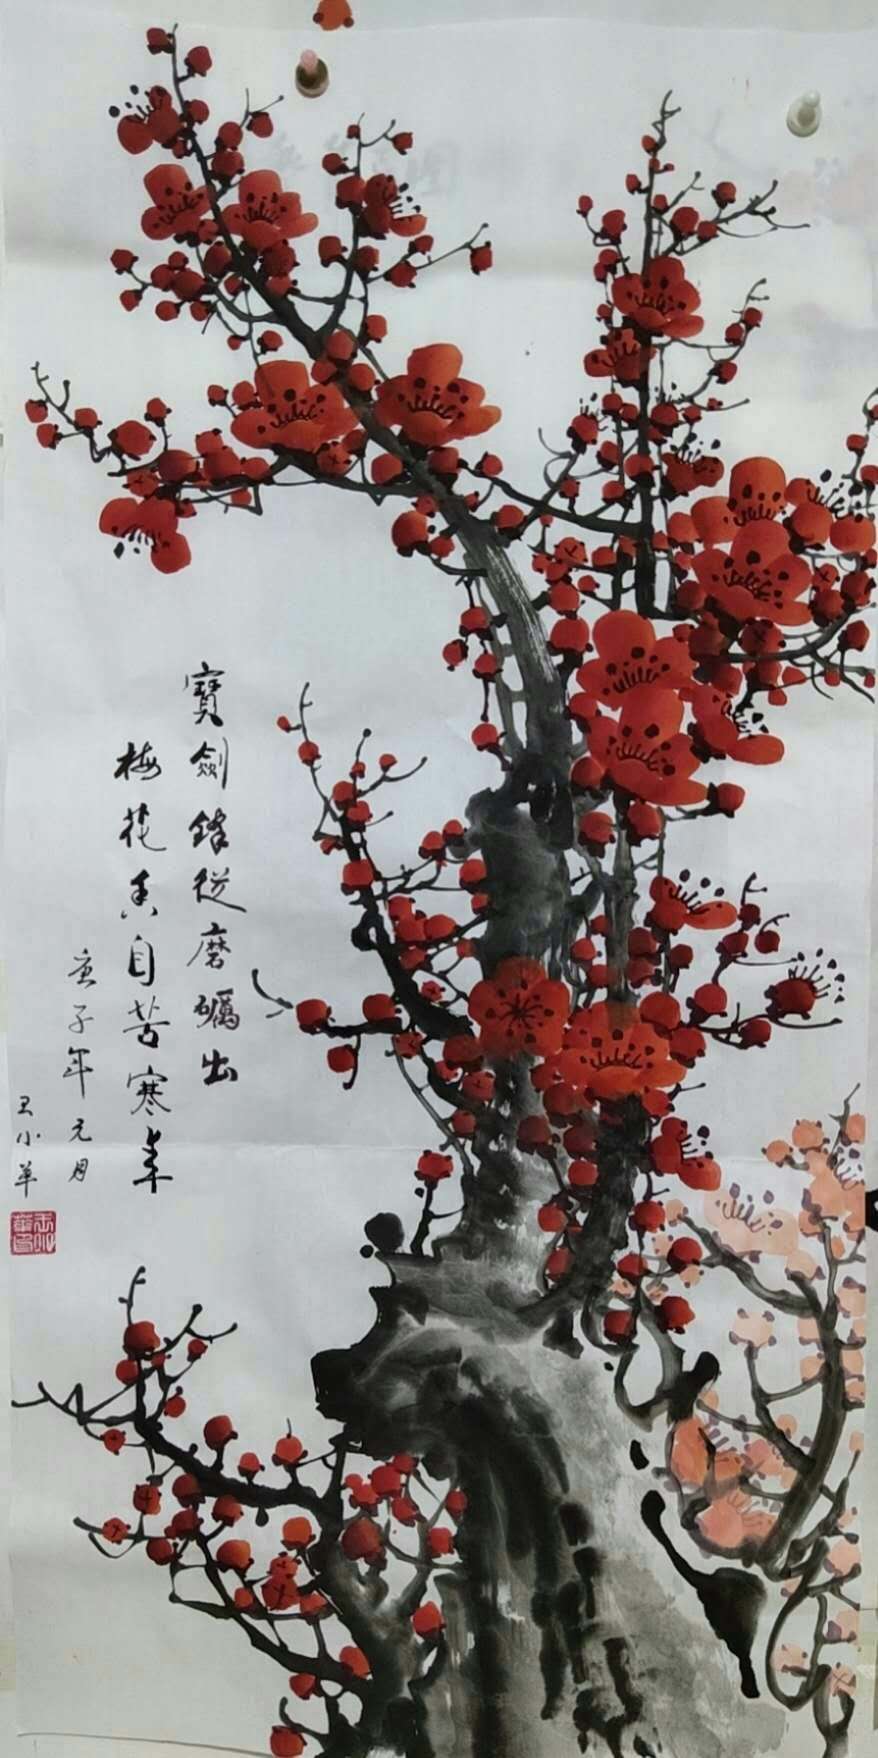 寶劍鋒從磨礪出
梅花香自苦寒来
庚子年元月
王小